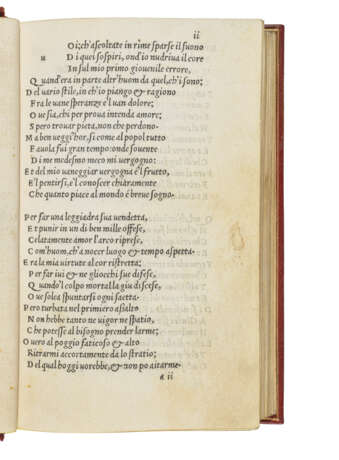 ii
Oi; ch'ascoltate in rime sparse il suono
u
D i quei sospiri, ond'io nudriua il core
In sul mio primo giouenile errore,
Q uand'era in parte altr'huom da quel, ch'i sono;
D el uario stile, in ch'io piango & ragiono
F ra le uane speranze e'l uan dolore;
O ue sia, chi per proua intenda amore;
S pero trouar pieta, non che perdono.
M a ben ueggi'hor, si come al popol tutto
F auola fui gran tempo: onde souente
D i me medesmo meco mi uergogno:
E t del mio uaneggiar uergogna è'l frutto,
E 'l pentirsi, e'l conoscer chiaramente
C he quanto piace al mondo è breue sogno.
P er far una leggiadra sua uendetta,
E t punir in un di ben mille offese,
C elatamente amor l'arco riprese,
C om'huom, ch'a nocer luogo & tempo aspetta.
E ra la mia uirtute al cor ristretta;
P er far iui & ne gliocchi sue difese,
Q uando'l colpo mortal la giu discese,
O ue solea spuntarsi ogni saetta.
P ero turbata nel primero assalto
N on hebbe tanto ne uigor ne spatio,
C he potesse al bisogno prender larme;
O uero al poggio faticoso & alto
R itrarmi accortamente da lo stratio;
D el qual hoggi uorebbe, & non po aitarme.
a ii